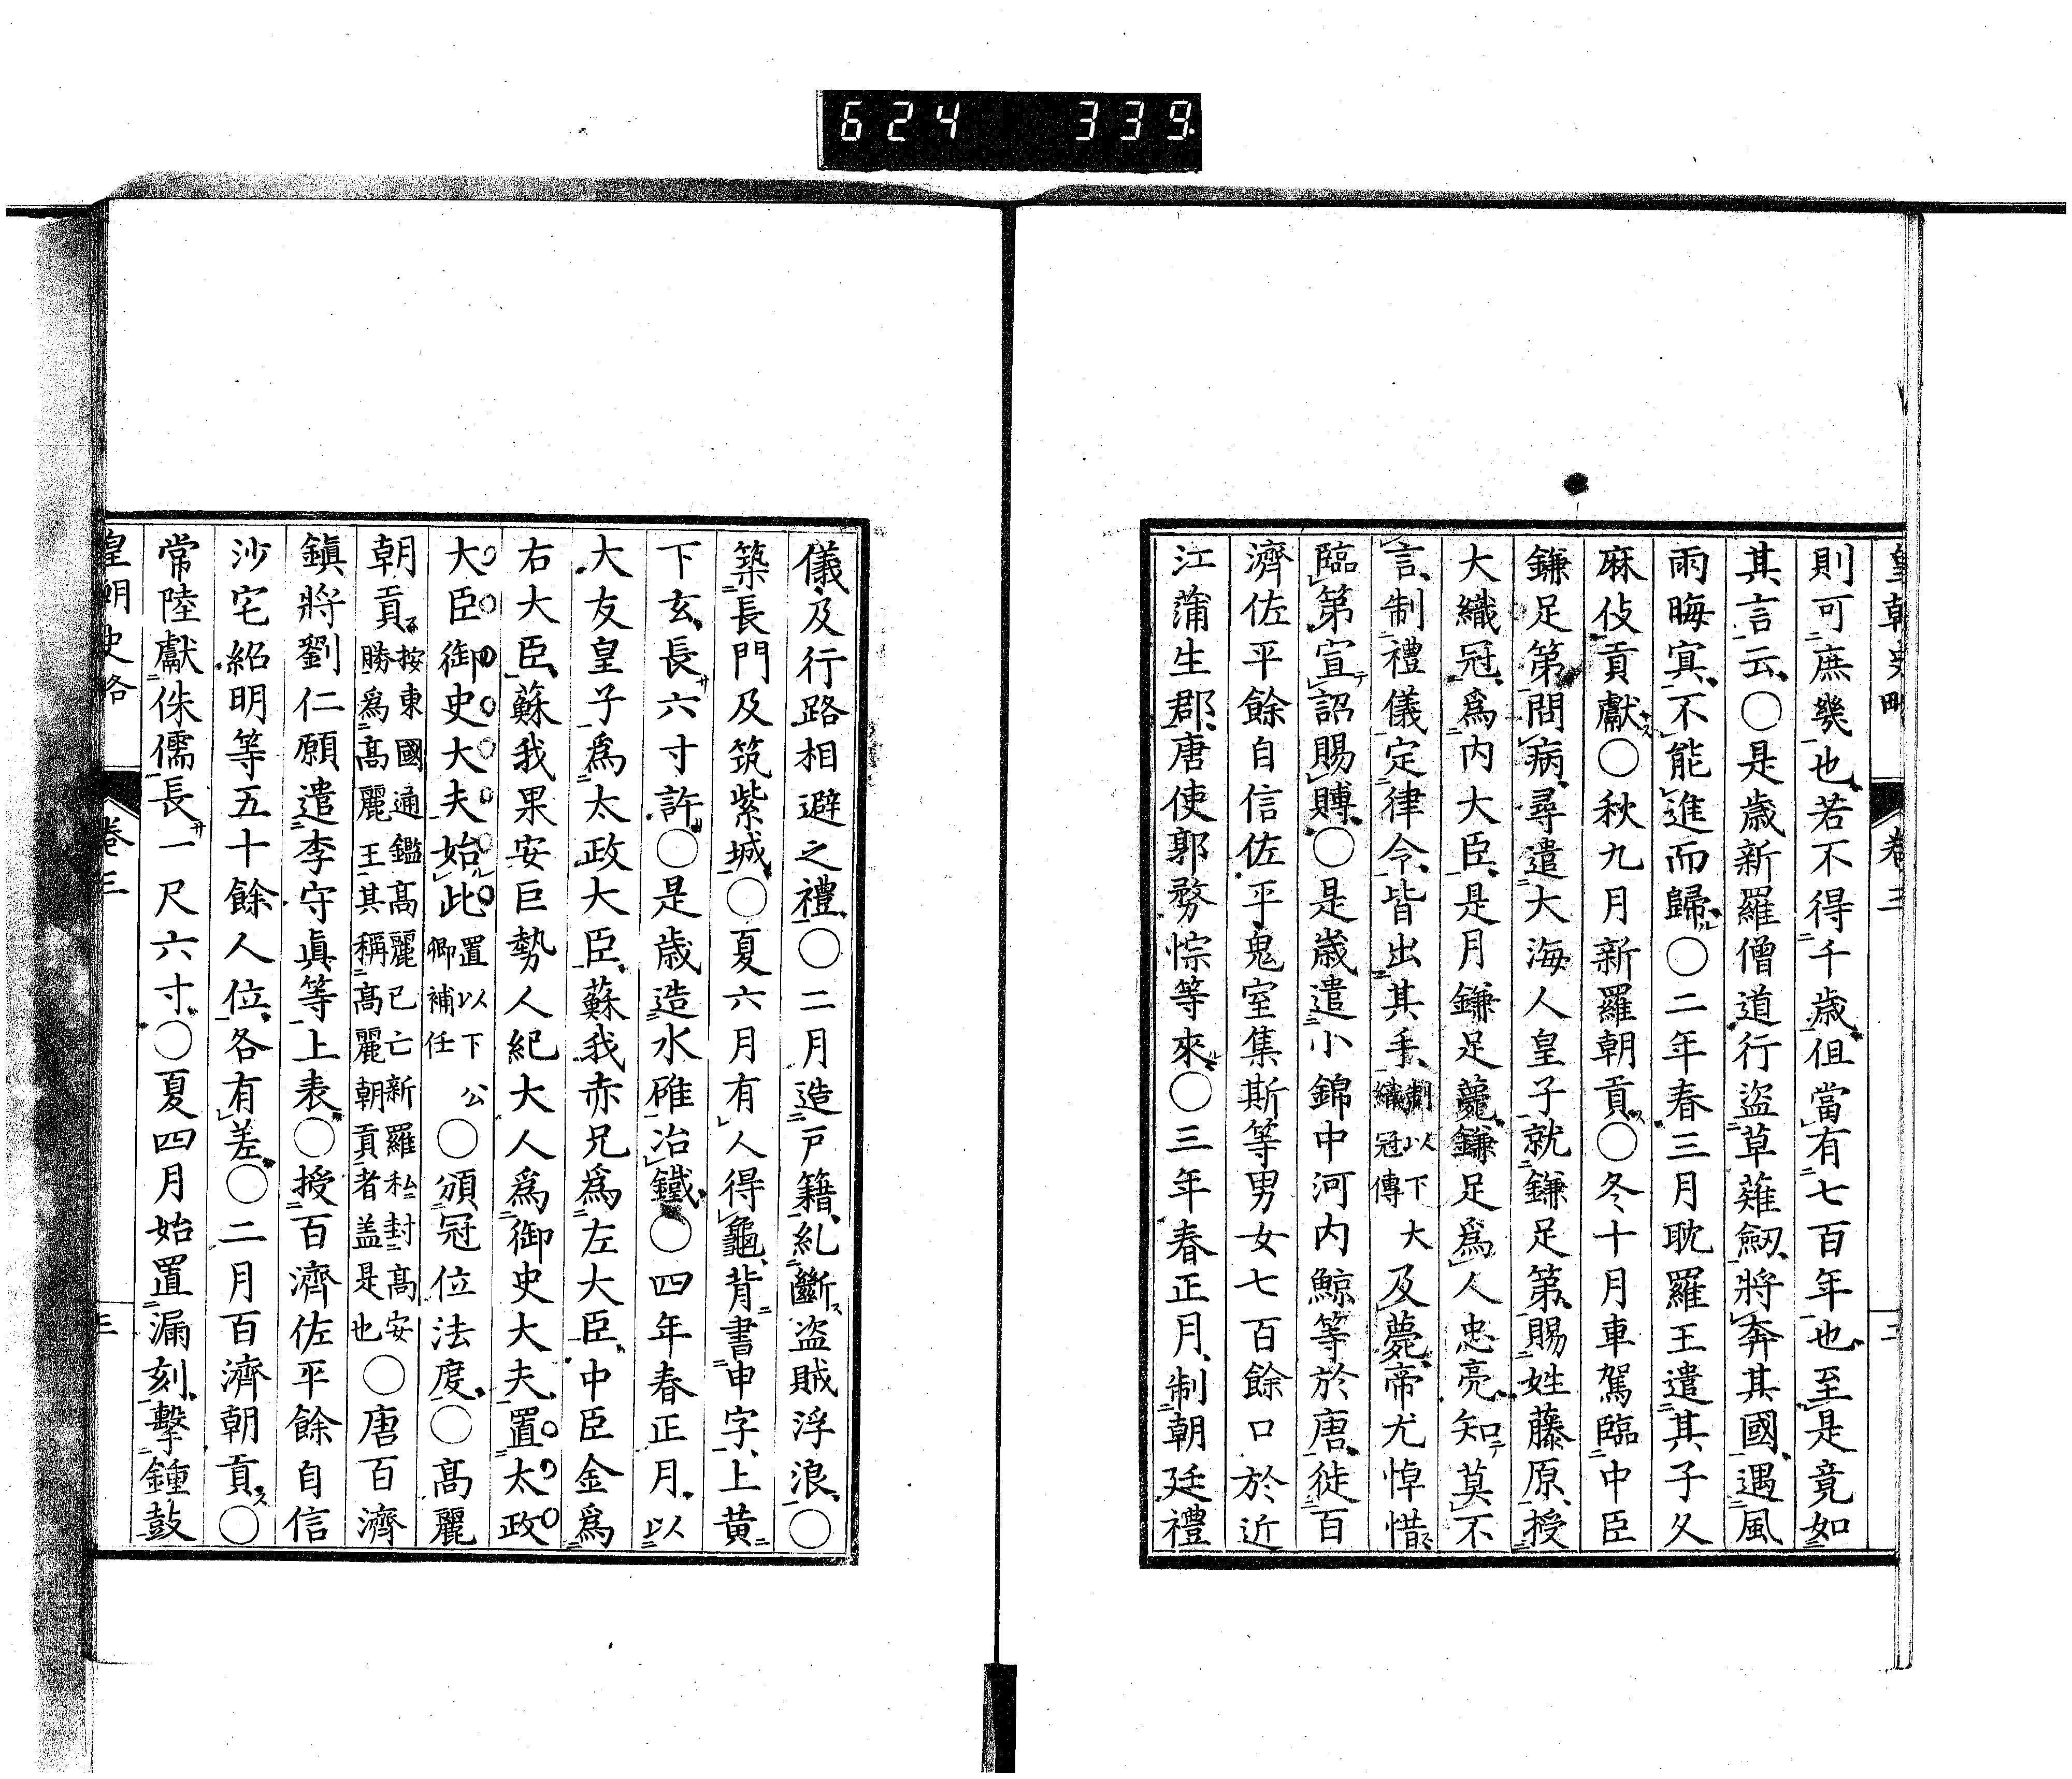 624 339
皇朝史略 卷三 二
則可庶幾也若不得千歳但當有七百年也至是竟如
其言云○是歳新羅僧道行盜草薙劒將奔其國遇風
雨晦冥不能進而歸○二年春三月耽羅王遣其子久
麻伎貢獻○秋九月新羅朝貢○冬十月車駕臨中臣
鎌足第問病尋遣大海人皇子就鎌足第賜姓藤原授
大織冠爲内大臣是月鎌足薨鎌足爲人忠亮知莫不
言制禮儀定律令皆出其手制以下大織冠傳及薨帝尤悼惜
臨第宣詔賜賻○是歳遣小錦中河内鯨等於唐徙百
濟佐平餘自信佐平鬼室集斯等男女七百餘口於近
江蒲生郡唐使郭務悰等來○三年春正月制朝廷禮
儀及行路相避之禮○二月造戸籍糺斷盜賊浮浪○
築長門及筑紫城○夏六月有人得龜背書申字上黄
下玄長六寸許○是歳造水碓冶鐵○四年春正月以
大友皇子爲太政大臣蘇我赤兄爲左大臣中臣金爲
右大臣蘇我果安巨勢人紀大人爲御史大夫置太政
大臣御史大夫始此置以下公卿補任○頒冠位法度○髙麗
朝貢按東國通鑑髙麗已亡新羅私封髙安勝爲髙麗王其稱髙麗朝貢者盖是也○唐百濟
鎭將劉仁願遣李守眞等上表○授百濟佐平餘自信
沙宅紹明等五十餘人位各有差○二月百濟朝貢○
常陸獻侏儒長一尺六寸○夏四月始置漏刻擊鍾鼓
皇朝史略 卷三 三